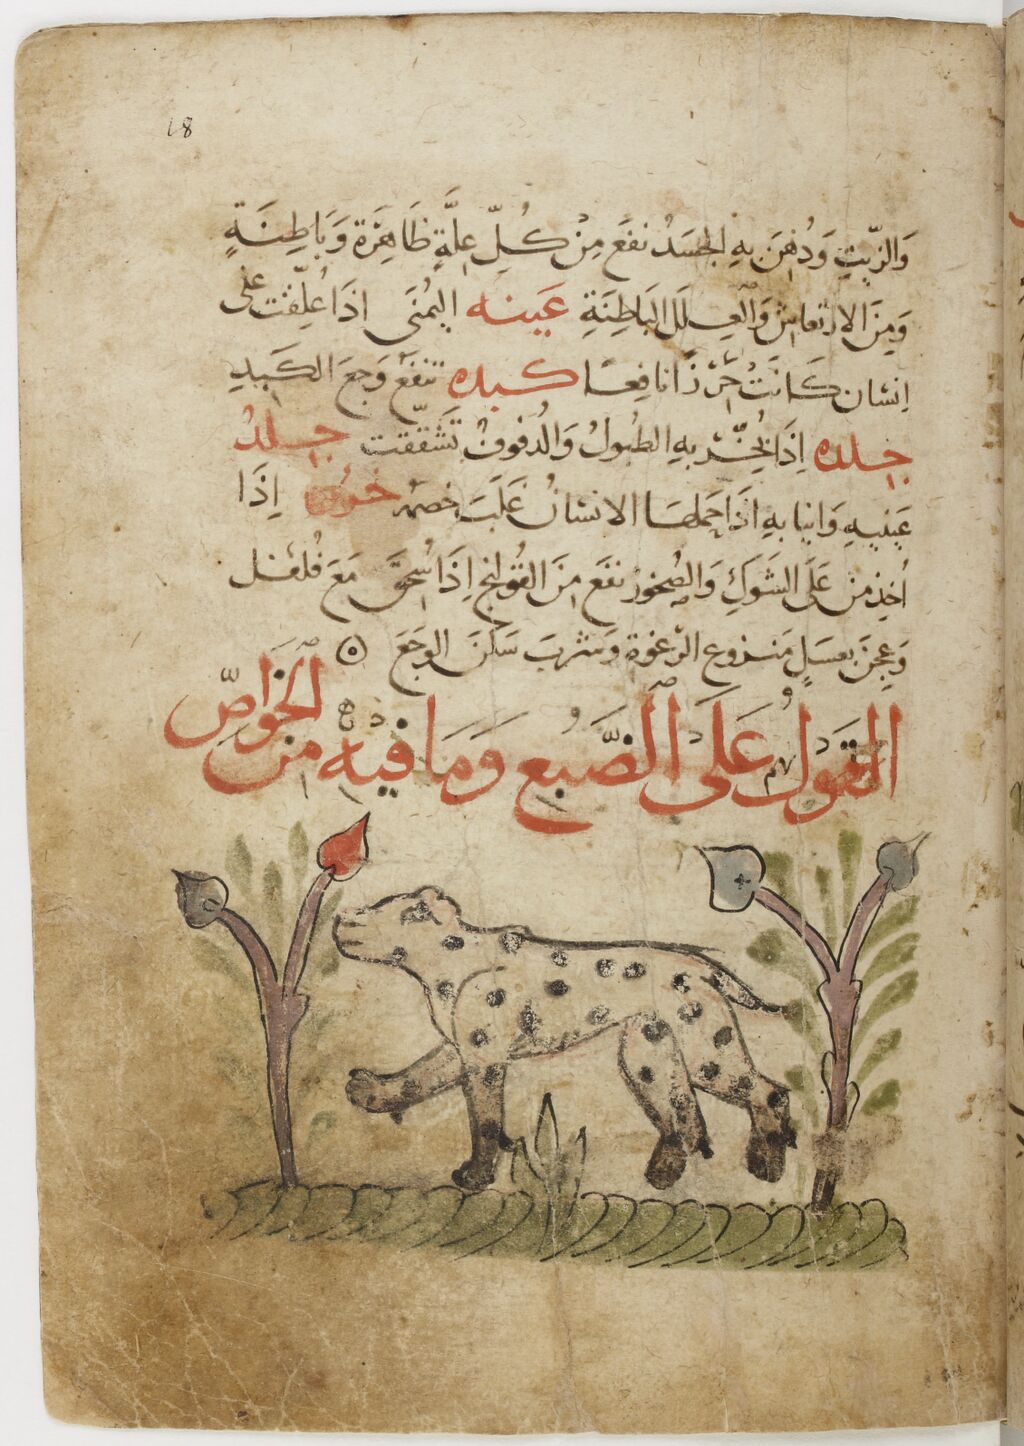 18
وَالزَّيتِ وَدُهِنَ بِهِ الجَسَدُ نفَعَ مِنْ كُلِّ عِلَّةٍ ظَاهِرَةٍ وَبَاطِنَةٍ
وَمِنَ الارتعاش وَالعِلَلِ البَاطِنَةِ عَينه اليُمنَى اذَا عُلِّقَت على
انسَان كَانَتْ حِرْزًا نافِعًا كبده تنفَعُ وَجَعَ الكَبِدِ
جلده اِذَا بُخِّرَ بِهِ الطبُولُ وَالدفوفُ تَشَقَّقت جِلدُ
عَينيهِ وَانيابهِ اذَا حَمَلهَا الانسَانُ غَلَبَ خصمه خروه اِذَا
اُخِذ مِن عَلَى الشَوكِ وَالصُخور نفَعَ مِنَ القُولنج اِذَا سُحِقَ مَعَ فُلفُل
وَعُجِنَ بعَسَلٍ مَنزوع الرَغوَة وَشربَ سَكَّنَ الوجَعَ
القَولُ عَلَى الضَّبع وَمَا فيهِ مِنَ الخوَاصّ